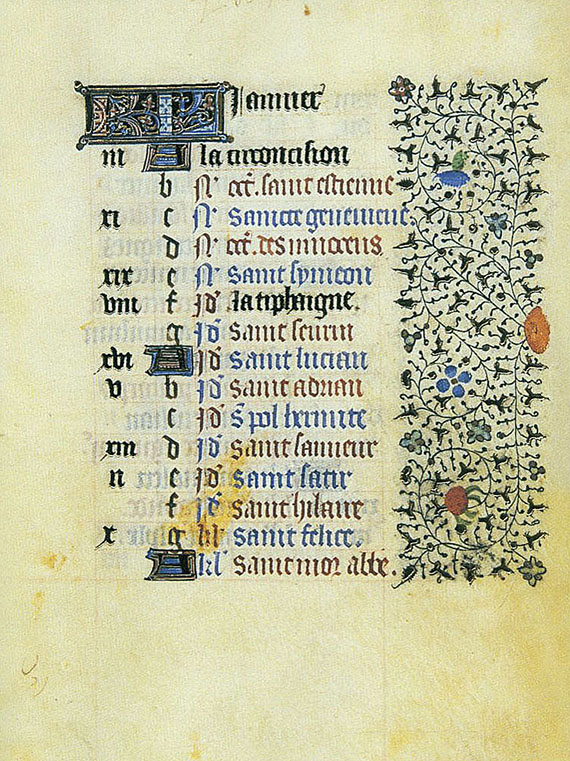 KL Januier
iii A la circoncision
b N' oct. saint estienne
xi c N' Saincte geneuieue.
d N' oct. des innocens
xix e N' Saint symeon
viii f Jd' la tiphaigne.
g Jd' Saint seurin
xvi A Jd' Saint lucian
v b Jd' Saint adrian
c Jd' S' pol hermite
xiii d Jd' Saint sauueur
ii e Jd' Saint satir
f Jd' Saint hilaire
x g kl' Saint felice.
A kl' Saint mor abbe.